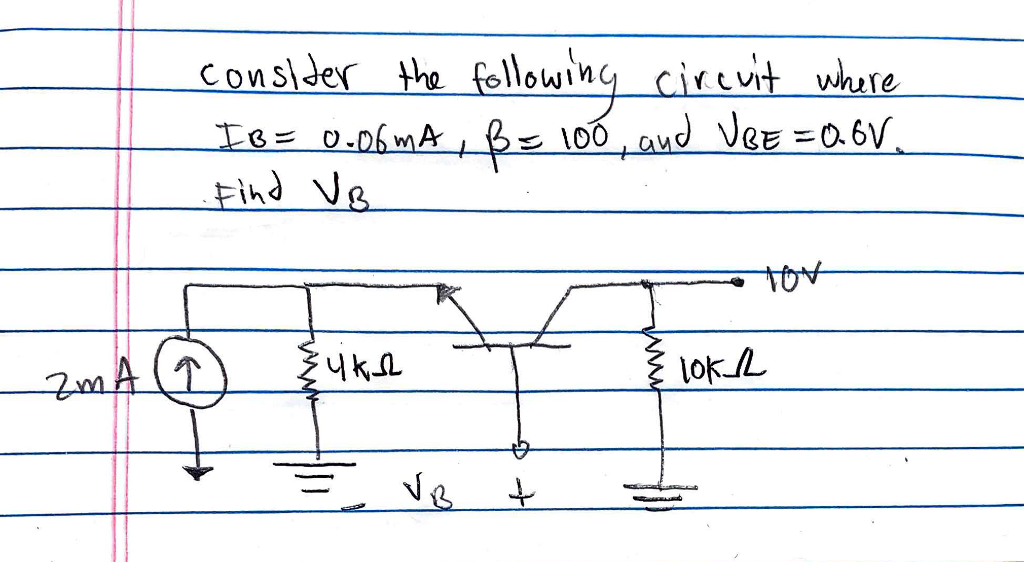 consider the following circuit where
IB = 0.06mA, β = 100, and VBE = 0.6V.
Find VB
10V
2mA
4kΩ
10KΩ
- VB +